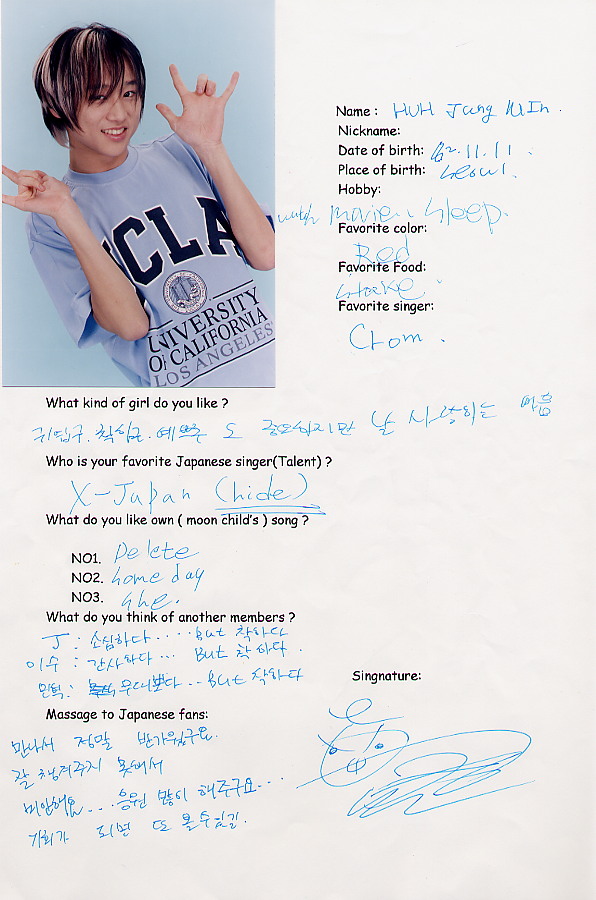 UCLA
UNIVERSITY
OF CALIFORNIA
LOS ANGELES
Name : HUH Jung MIn.
Nickname:
Date of birth: 82.11.11.
Place of birth: seoul.
Hobby:
watch movie, sleep.
Favorite color:
Red
Favorite Food:
Favorite singer:
Crom.
What kind of girl do you like ?
귀엽구. 착하구. 예쁜쭈 도 중요하지만 날 사랑하는 마음
Who is your favorite Japanese singer(Talent) ?
X-Japan (hide)
What do you like own ( moon child's ) song ?
NO1. Delete
NO2. some day
NO3. she.
What do you think of another members ?
J : 소심하다 ..... But 착하다
이수 : 간사하다 ... But 착하다.
민혁: 우대뽀다 ... But 착하다
Singnature:
Massage to Japanese fans:
만나서 정말 반가웠구요.
잘 챙겨주지 못해서
미안해요... 응원 많이 해주구요...
기회가 되면 또 볼수있길.